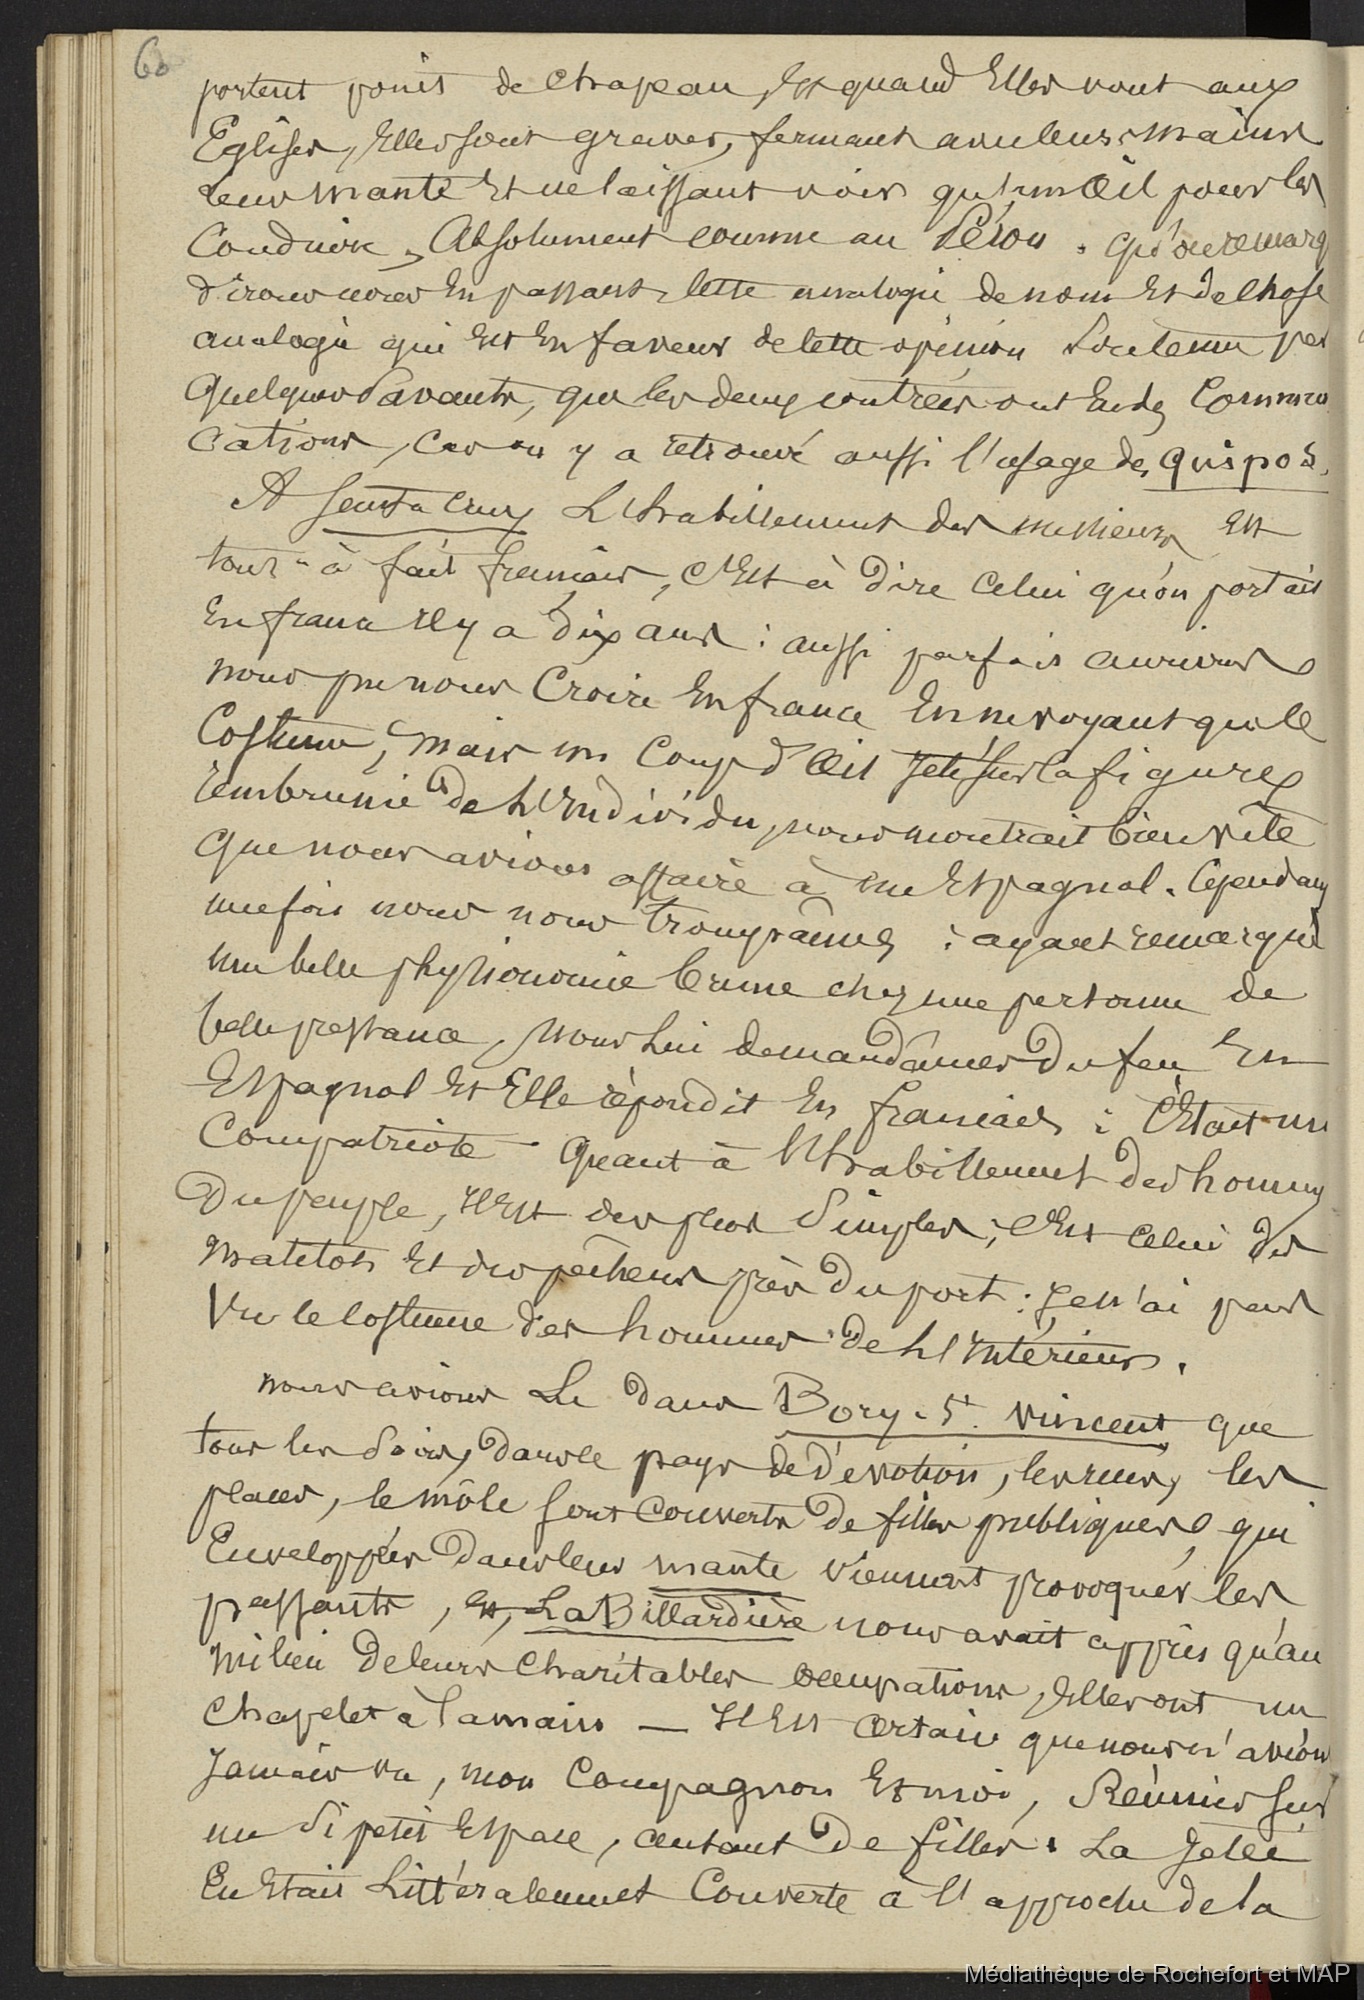 60
portent point de chapeau, Et quand Elles vont aux
Eglises, Elles sont graves, fermant avec leurs mains
leur mante Et ne laissant voir qu'un Œil pour les
Conduire, Absolument comme au Pérou. qu'on remarq
d'irons nous En passant, cette analogie de nom Et de chose
analogie qui Est En faveur de cette opinion soutenue par
quelques savants, que les deux contrées ont Eu des Commu
cations, car on y a retrouvé aussi l'usage des quipos.
A Santa Cruz L'habillement des messieurs Est
tout-à fait français, c'Est à dire celui qu'on portait
En france Il y a dix ans : aussi parfois aurions
nous pu nous Croire En france En ne voyant que le
Costume, mais un Coup d'Œil jeté sur la figure
rembrunie de l'Individu, nous montrait bien vite
que nous avions affaire à un Espagnol. Cependant
une fois nous nous trompâmes : ayant remarqué
une belle physionomie brune chez une personne de
belle prestance, nous lui demandâmes du feu En
Espagnol Et Elle répondit En français : C'Etait un
Compatriote. Quant à l'habillement des hommes
Du peuple, Il Est des plus Simples ; c'Est celui des
matelots Et des pêcheurs près du port : je n'ai pas
Vu le costume des hommes de l'Intérieur.
nous avions Lu dans Bory-St. Vincent que
tous les soirs, dans ce pays de dévotion, les rues, les
places, le môle sont couverts de filles publiques, qui
Enveloppées dans leur mante viennent provoquer les
passants, Et, La Billardière nous avait appris qu'au
milieu de leurs charitables occupations, Elles ont un
chapelet à la main — Il Est certain que nous n'avions
Jamais vu, mon Compagnon Et moi, Réunies sur
un si petit Espace, autant de filles. La Jetée
En Etait Littéralement Couverte à l'approche de la
Médiathèque de Rochefort et MAP